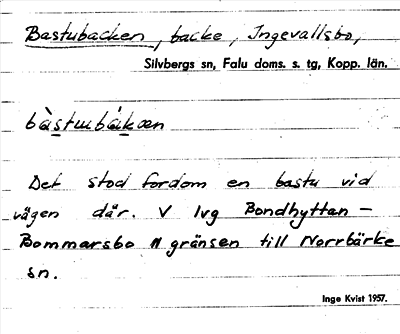 Bastubacken, backe, Ingevallsbo,
Silvbergs sn, Falu doms. s. tg, Kopp. län.
bàstɯbák̬æn
Det stod fordom en bastu vid
vägen där. V lvg Bondhyttan –
Bommarsbo N gränsen till Norrbärke
sn.
Inge Kvist 1957.